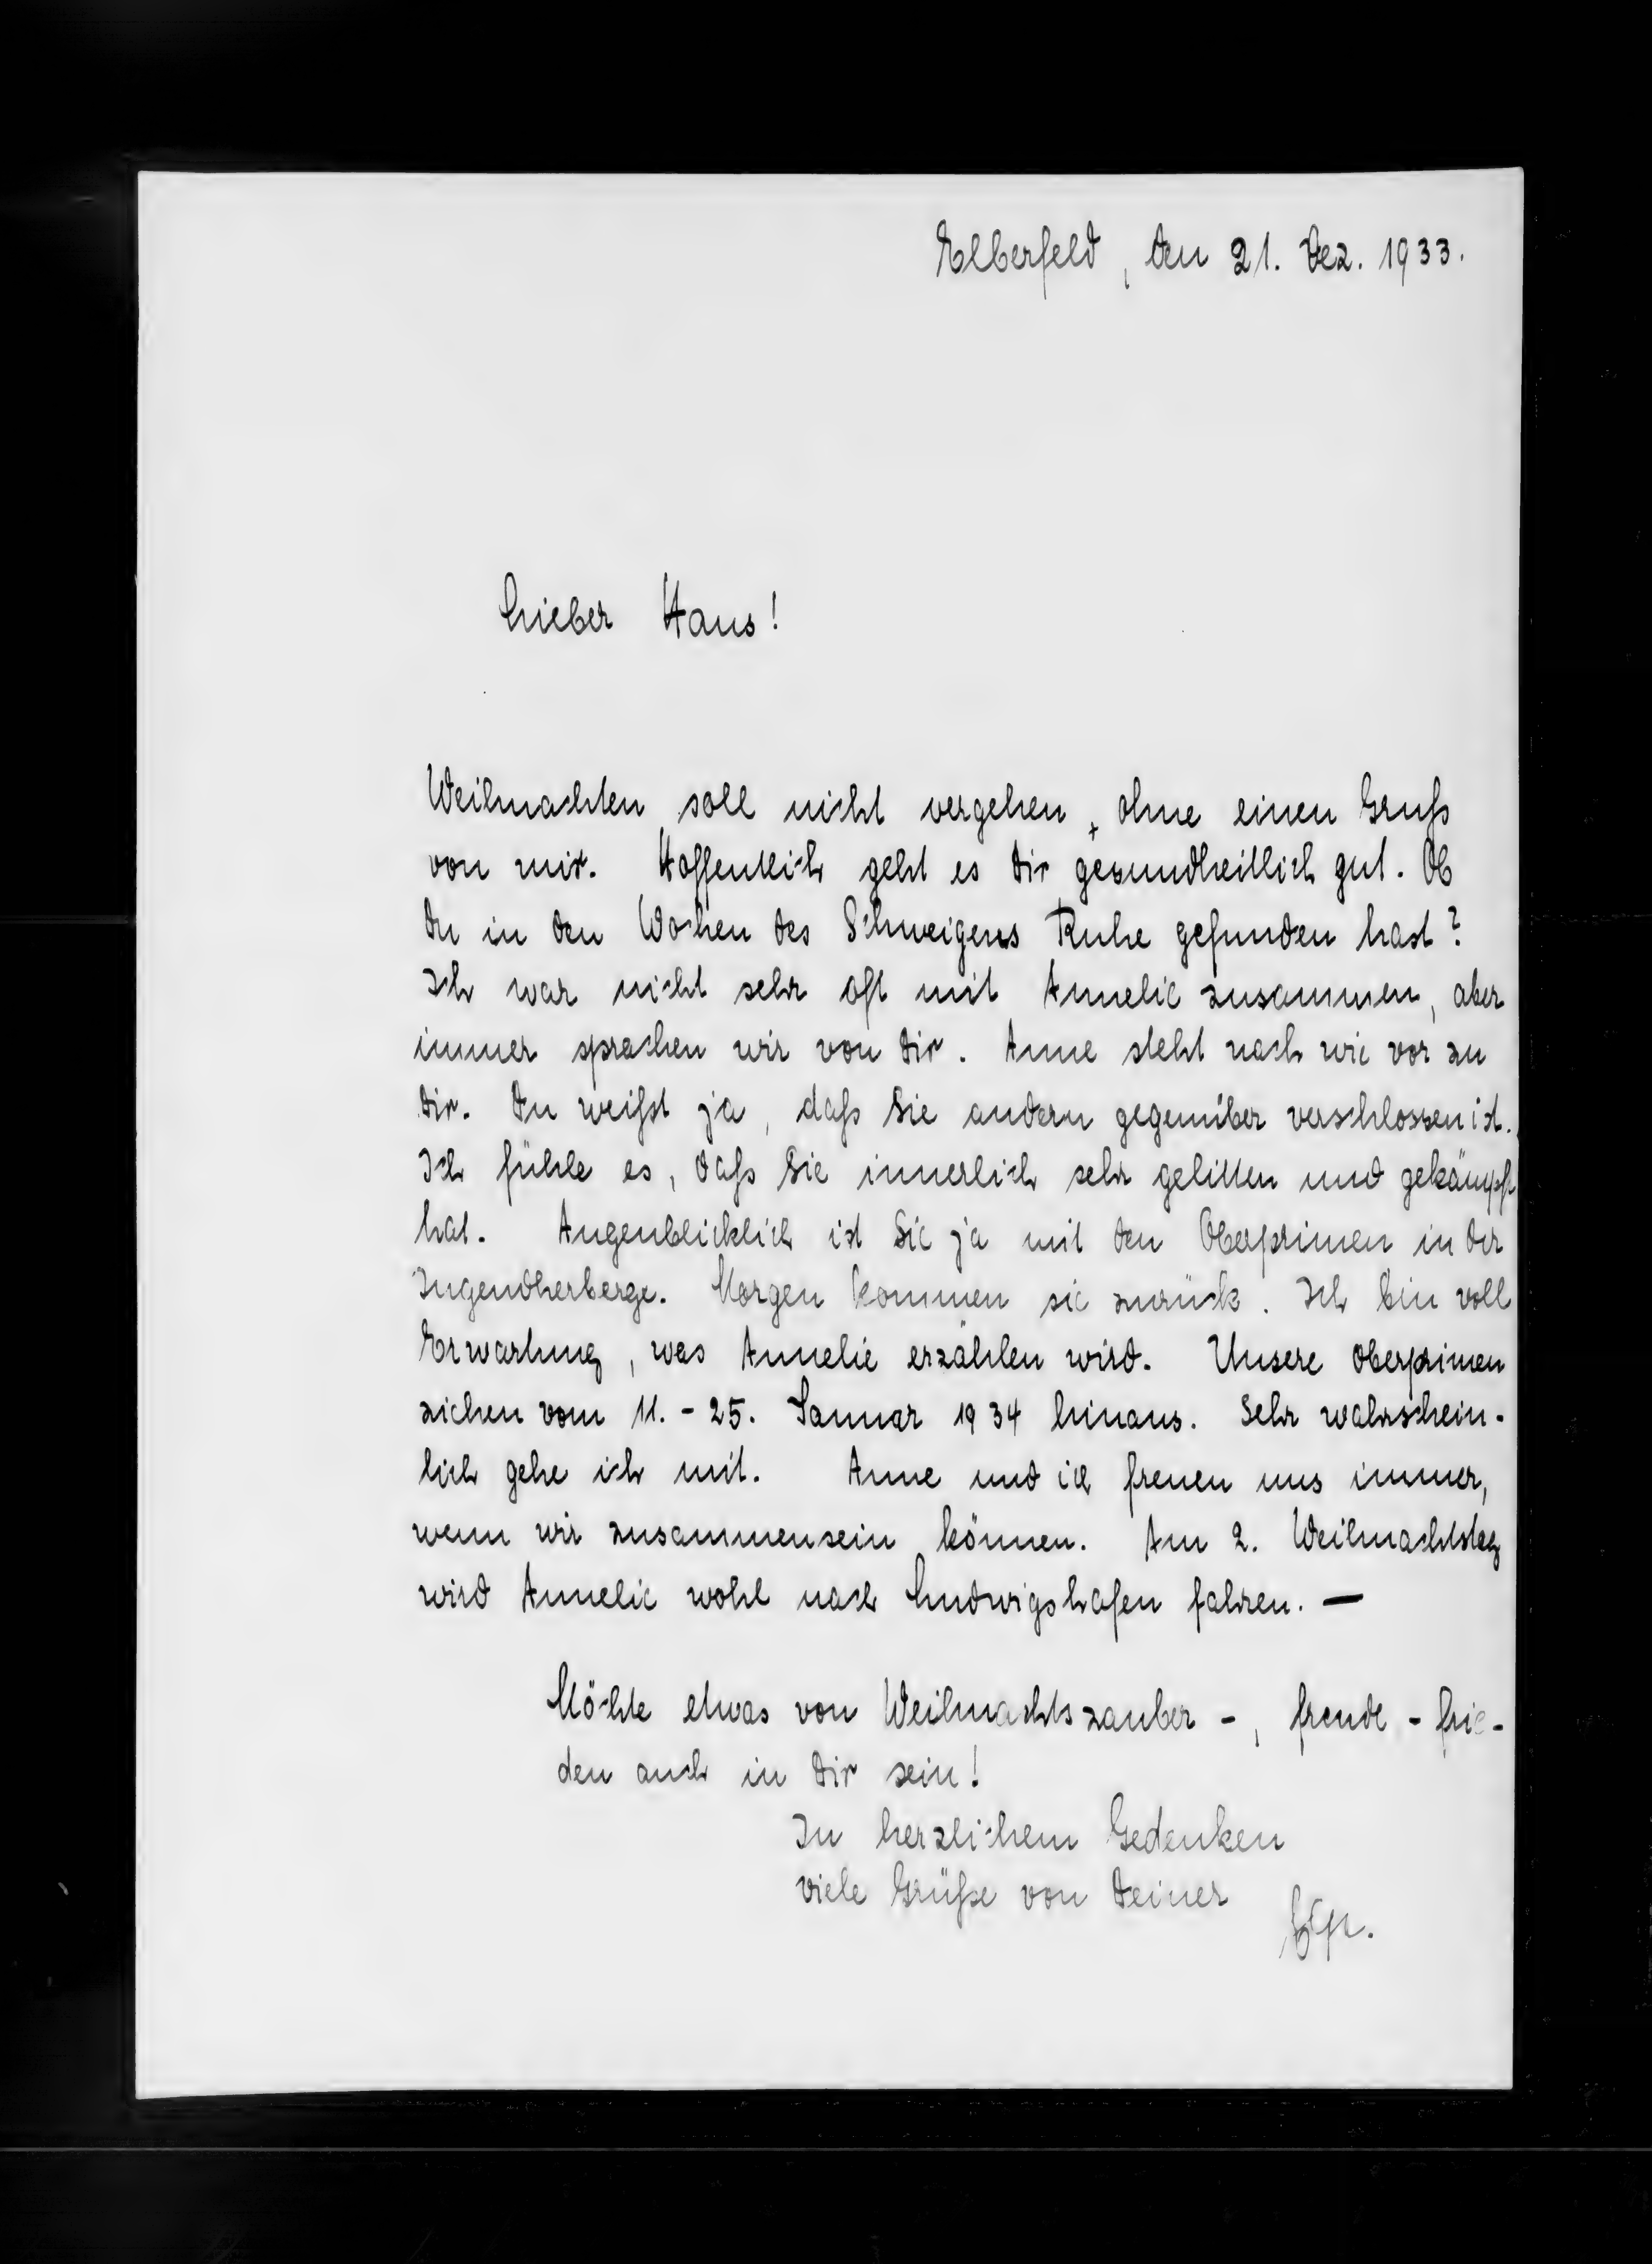 Elberfeld, den 21. Dez. 1933.
Lieber Hans!
Weihnachten soll nicht vergehen, ohne einen Gruß
von mir. Hoffentlich geht es Dir gesundheitlich gut. Ob
Du in den Wochen des Schweigens Ruhe gefunden hast?
Ich war nicht sehr oft mit Annelie zusammen, aber
immer sprachen wir von Dir. Anne steht nach wie vor zu
Dir. Du weißt ja, daß Sie andern gegenüber verschlossen ist.
Ich fühle es, daß Sie innerlich sehr gelitten und gekämpft
hat. Augenblicklich ist Sie ja mit den Oberprimen in der
Jugendherberge. Morgen kommen sie zurück. Ich bin voll
Erwartung, was Annelie erzählen wird. Unsere Oberprimen
ziehen vom 11. - 25. Januar 1934 hinaus. Sehr wahrschein-
lich gehe ich mit. Anne und ich freuen uns immer,
wenn wir zusammensein können. Am 2. Weihnachtstag
wird Annelie wohl nach Ludwigshafen fahren. —
Möchte etwas von Weihnachtszauber -, freude - frie-
den auch in Dir sein!
In herzlichem Gedenken
viele Grüße von Deiner